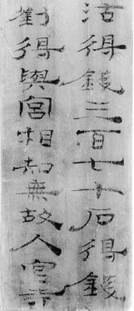 沽得錢三百七十石得錢
得與宮相知棄故人宮